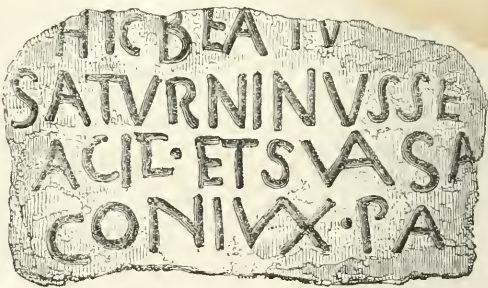 HIC BEATV
SATVRNINVS SE
ACIE · ET SVA SA
CONIVX · PA